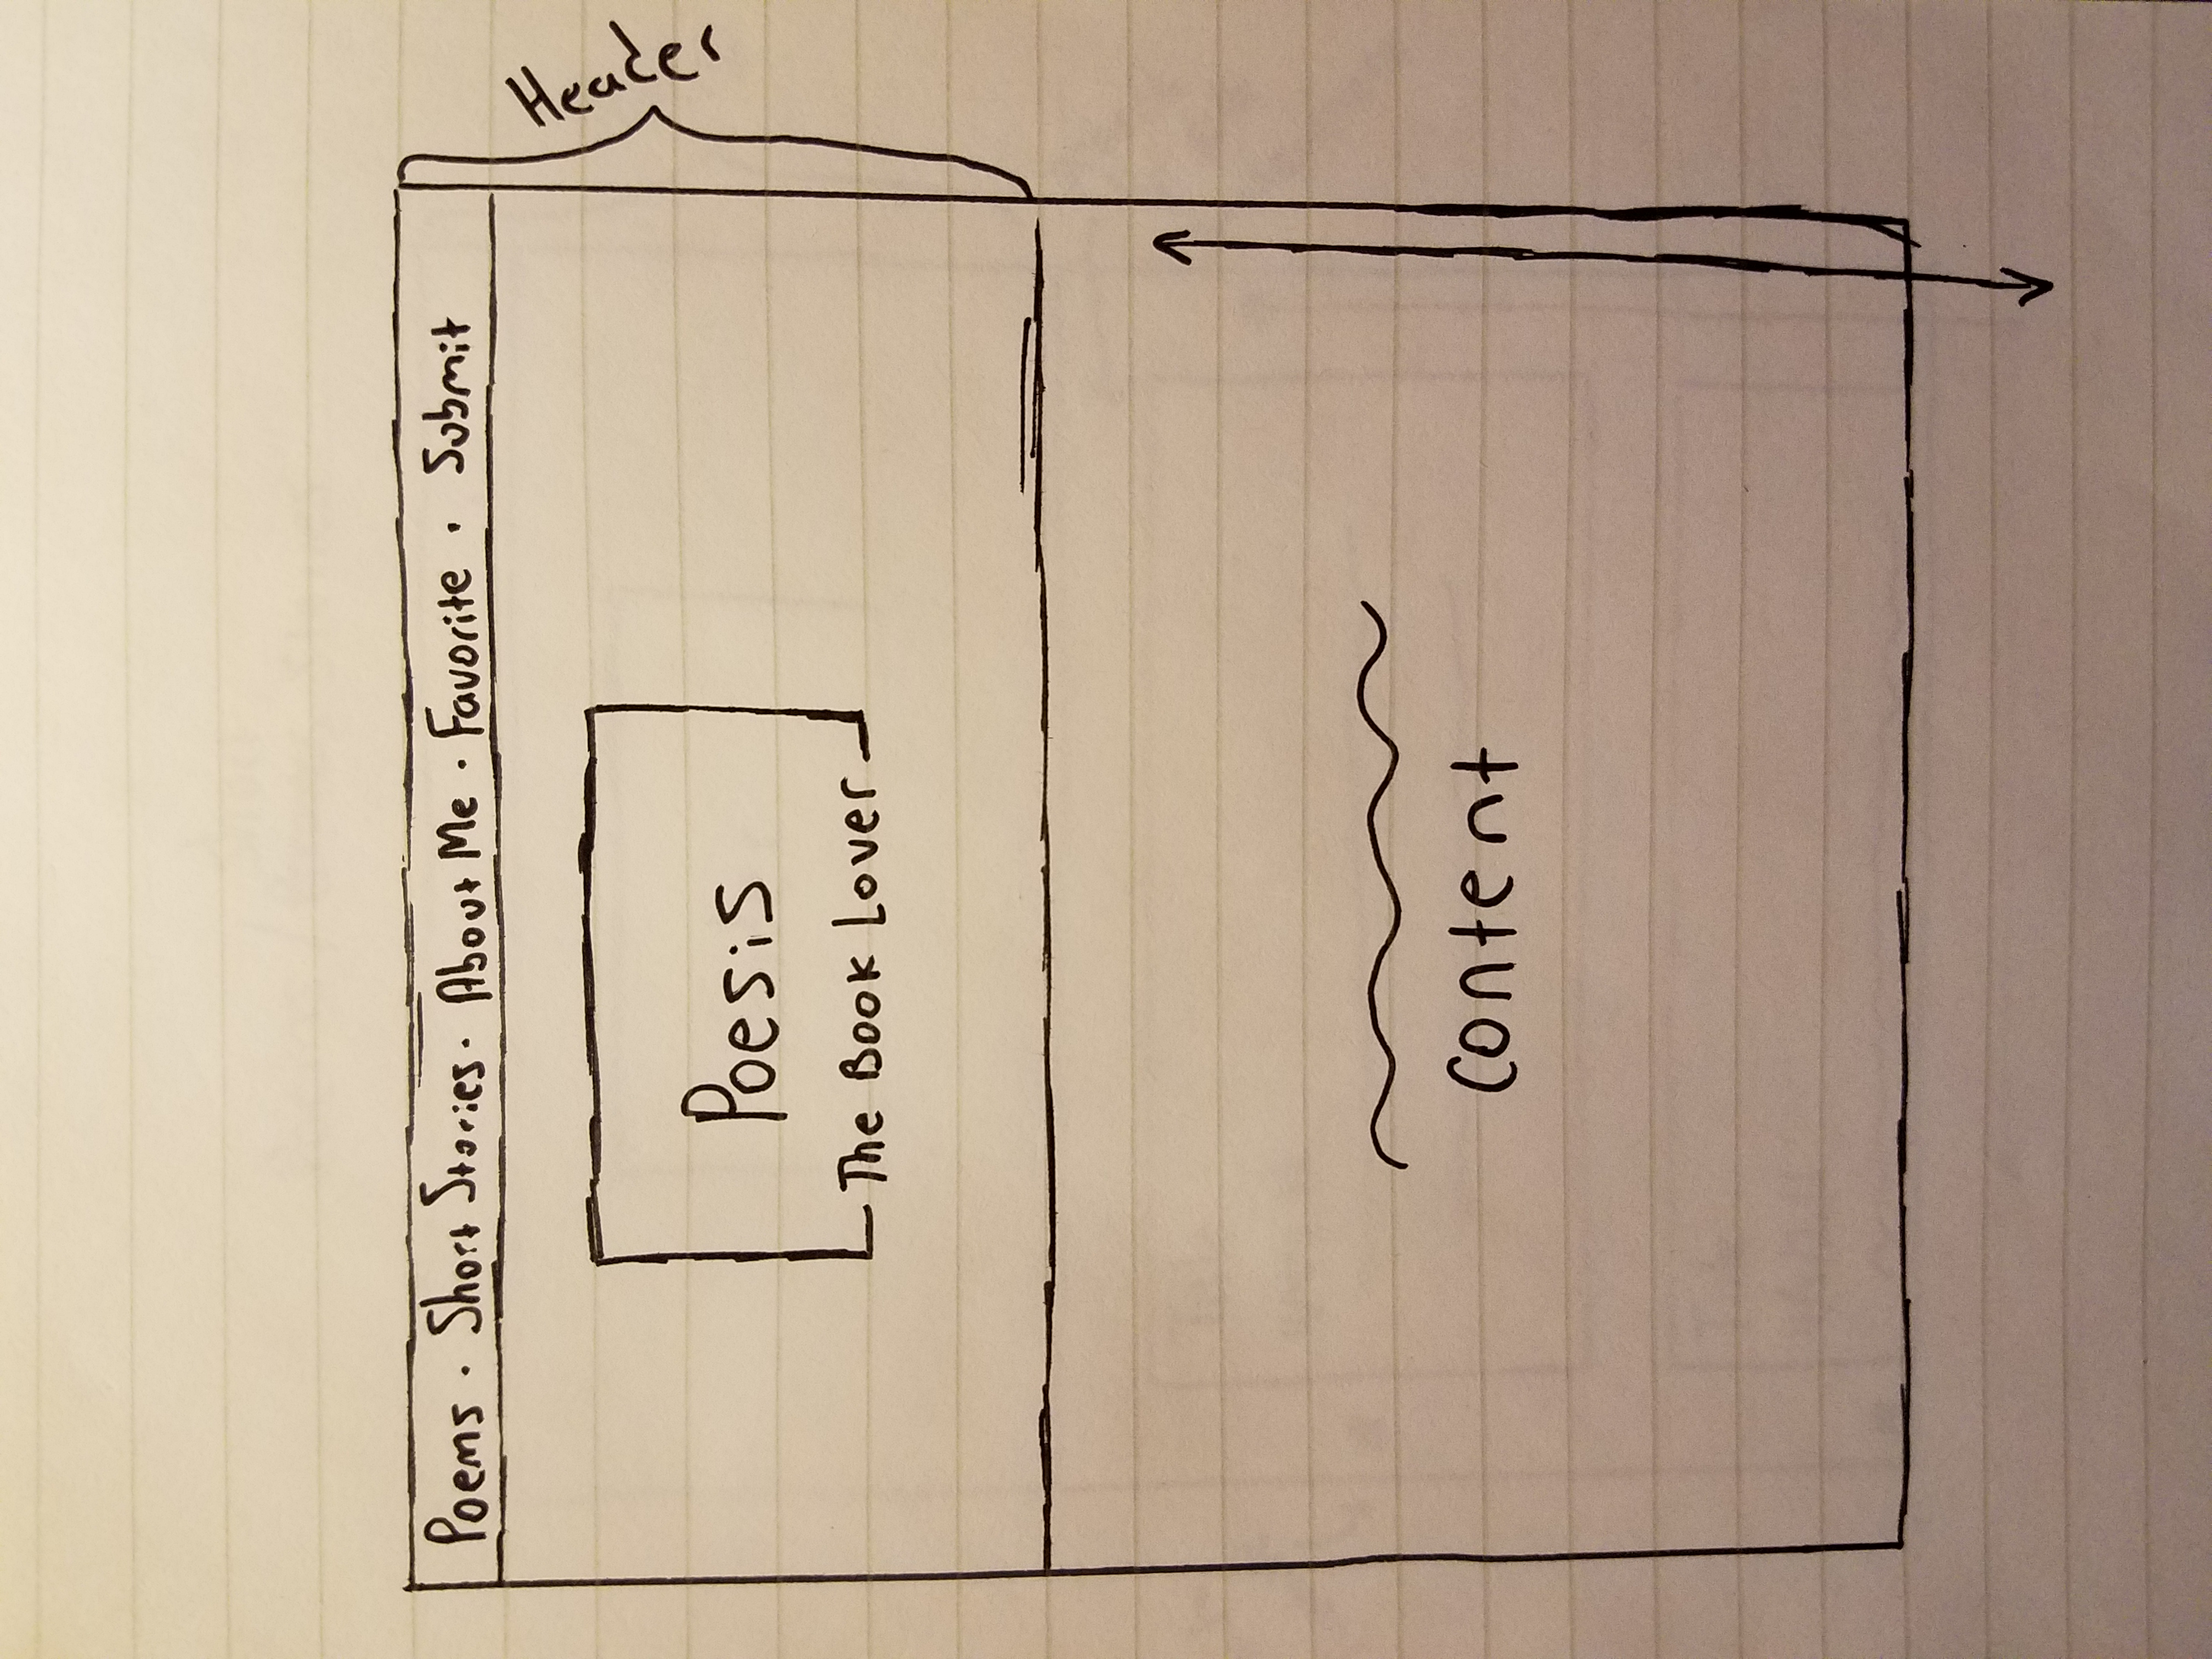 Poems · Short Stories · About Me · Favorite · Submit
Header
Poesis
The Book Lover
Content